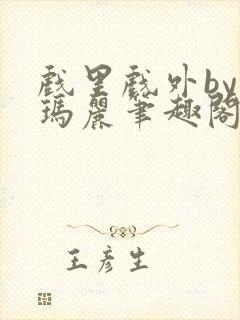 戲里戲外by
瑪麗筆趣閣
王彥生